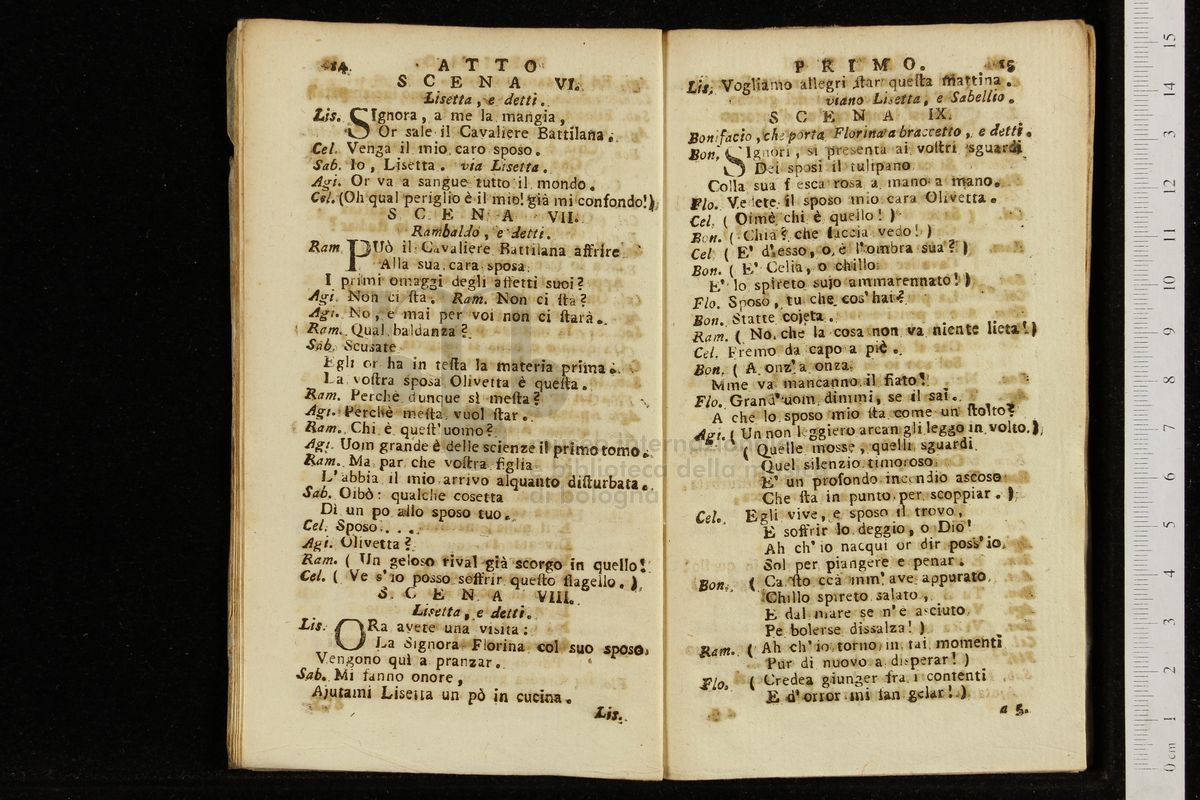 14 ATTO
SCENA VI.
Lisetta, e detti.
Lis. SIgnora, a me la mangia,
Or sale il Cavaliere Battilana.
Cel. Venga il mio caro sposo.
Sab. Io, Lisetta. via Lisetta.
Agi. Or va a sangue tutto il mondo.
Cel. (Oh qual periglio è il mio! già mi confondo!)
SCENA VII.
Rambaldo, e detti.
Ram. PUò il Cavaliere Battilana affrire
Alla sua cara sposa
I primi omaggi degli affetti suoi?
Agi. Non ci sta. Ram. Non ci sta?
Agi. No, e mai per voi non ci starà.
Ram. Qual baldanza?
Sab. Scusate
Egli or ha in testa la materia prima.
La vostra sposa Olivetta è questa.
Ram. Perchè dunque sì mesta?
Agi. Perchè mesta vuol star.
Ram. Chi è quest'uomo?
Agi. Uom grande è delle scienze il primo tomo.
Ram. Ma par che vostra figlia
L'abbia il mio arrivo alquanto disturbata.
Sab. Oibò: qualche cosetta
Di un po allo sposo tuo.
Cel. Sposo....
Agi. Olivetta?
Ram. (Un geloso rival già scorgo in quello!
Cel. (Ve s'io posso soffrir questo flagello.)
SCENA VIII.
Lisetta, e detti.
Lis. ORa avete una visita:
La Signora Florina col suo sposo,
Vengono quì a pranzar.
Sab. Mi fanno onore,
Ajutami Lisetta un pò in cucina.
Lis.
PRIMO. 15
Lis. Vogliamo allegri star questa mattina.
viano Lisetta, e Sabellio.
SCENA IX.
Bonifacio, che porta Florina a braccetto, e detti.
Bon. SIgnori, si presenta ai vostri sguardi
Dei sposi il tulipano
Colla sua f esca rosa a mano a mano.
Flo. Vedete il sposo mio cara Olivetta.
Cel. (Oimè chi è quello!)
Bon. (Chia? che faccia vedo!)
Cel. (E' d'esso, o è l'ombra sua?)
Bon. (E' Celia, o chillo
E' lo spireto sujo ammarennato!)
Flo. Sposo, tu che cos'hai?
Bon. Statte cojeta.
Ram. (No, che la cosa non va niente lieta!)
Cel. Fremo da capo a piè.
Bon. (A onz'a onza
Mme va mancanno il fiato!
Flo. Grand'uom dimmi, se il sai.
A che lo sposo mio sta come un stolto?
Agi. (Un non leggiero arcan gli leggo in volto.)
(Quelle mosse, quelli sguardi
Quel silenzio timoroso
E' un profondo incendio ascoso
Che sta in punto per scoppiar.)
Cel. Egli vive, e sposo il trovo,
E soffrir lo deggio, o Dio!
Ah ch'io nacqui or dir poss'io
Sol per piangere e penar.
Bon. (Ca sto ccà mm'ave appurato
Chillo spireto salato,
E dal mare se n'è asciuto
Pe bolerse dissalza!)
Ram. (Ah ch'io torno in tai momenti
Pur di nuovo a disperar!)
Flo. (Credea giunger fra i contenti
E d'orror mi fan gelar!)
a 5.
museo internazionale
biblioteca della musica
di bologna